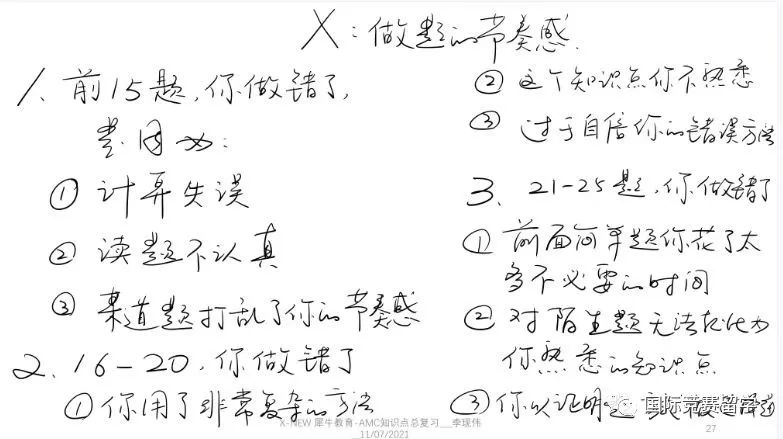 X：做题的节奏感
1、前15题，你做错了，
是因为：
① 计算失误
② 读题不认真
③ 某道题打乱了你的节奏感
2、16-20，你做错了
① 你用了非常复杂的方法
② 这个知识点你不熟悉
③ 过于自信你的错误方法
3、21-25题，你做错了
① 前面简单题你花了太
多不必要的时间
② 对陌生题无法转化为
你熟悉的知识点
③ 你以证明
国际竞赛留学
X-NEW 犀牛教育-AMC知识点总复习__李现伟
__11/07/2021
27